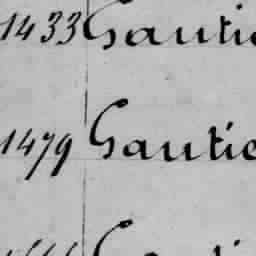 1433 Gautie
1479 Gautie